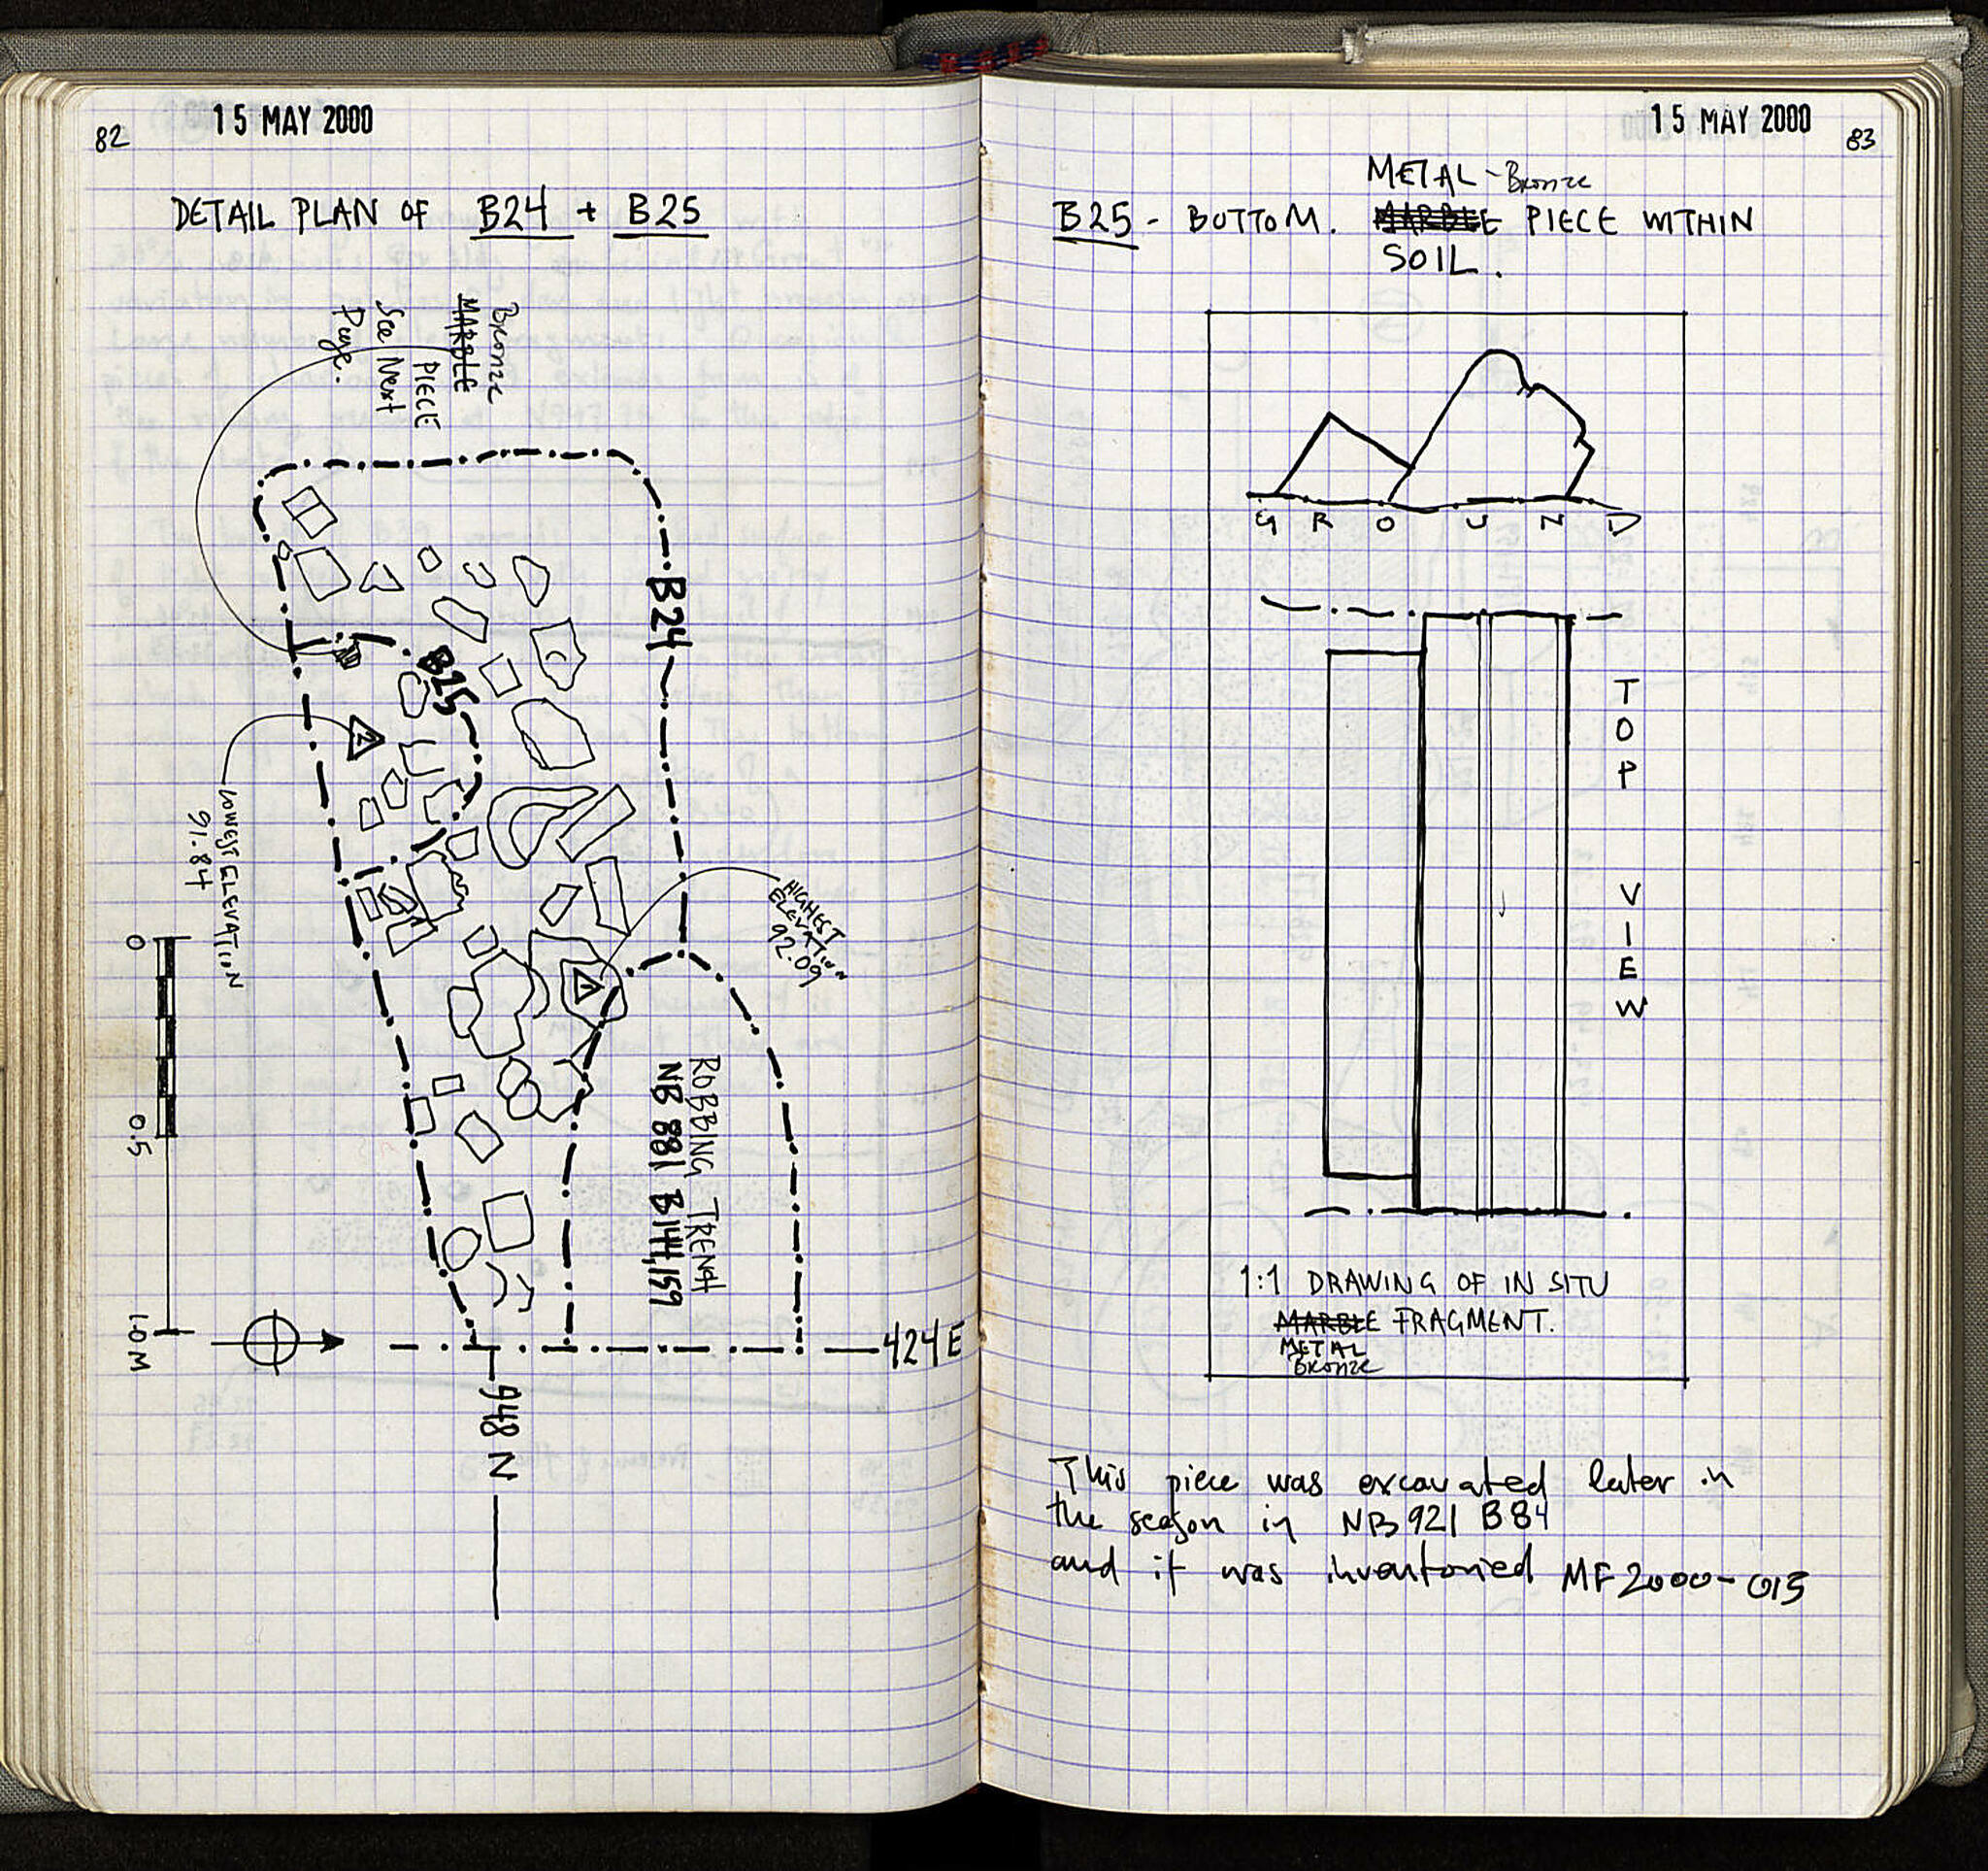 82
15 MAY 2000
DETAIL PLAN OF B24 + B25
Bronze
MARBLE
PIECE
See Next
Page.
B24
B25
2
LOWEST ELEVATION
91.84
HIGHEST
ELEVATION
92.09
1
ROBBING TRENCH
NB 881 B144,159
0
0.5
1.0 M
424 E
948 N
15 MAY 2000
83
METAL - Bronze
B25 - BOTTOM. MARBLE PIECE WITHIN
SOIL.
GROUND
TOP VIEW
1:1 DRAWING OF IN SITU
MARBLE FRAGMENT.
METAL
Bronze
This piece was excavated later in
the season in NB 921 B84
and it was inventoried MF 2000-013